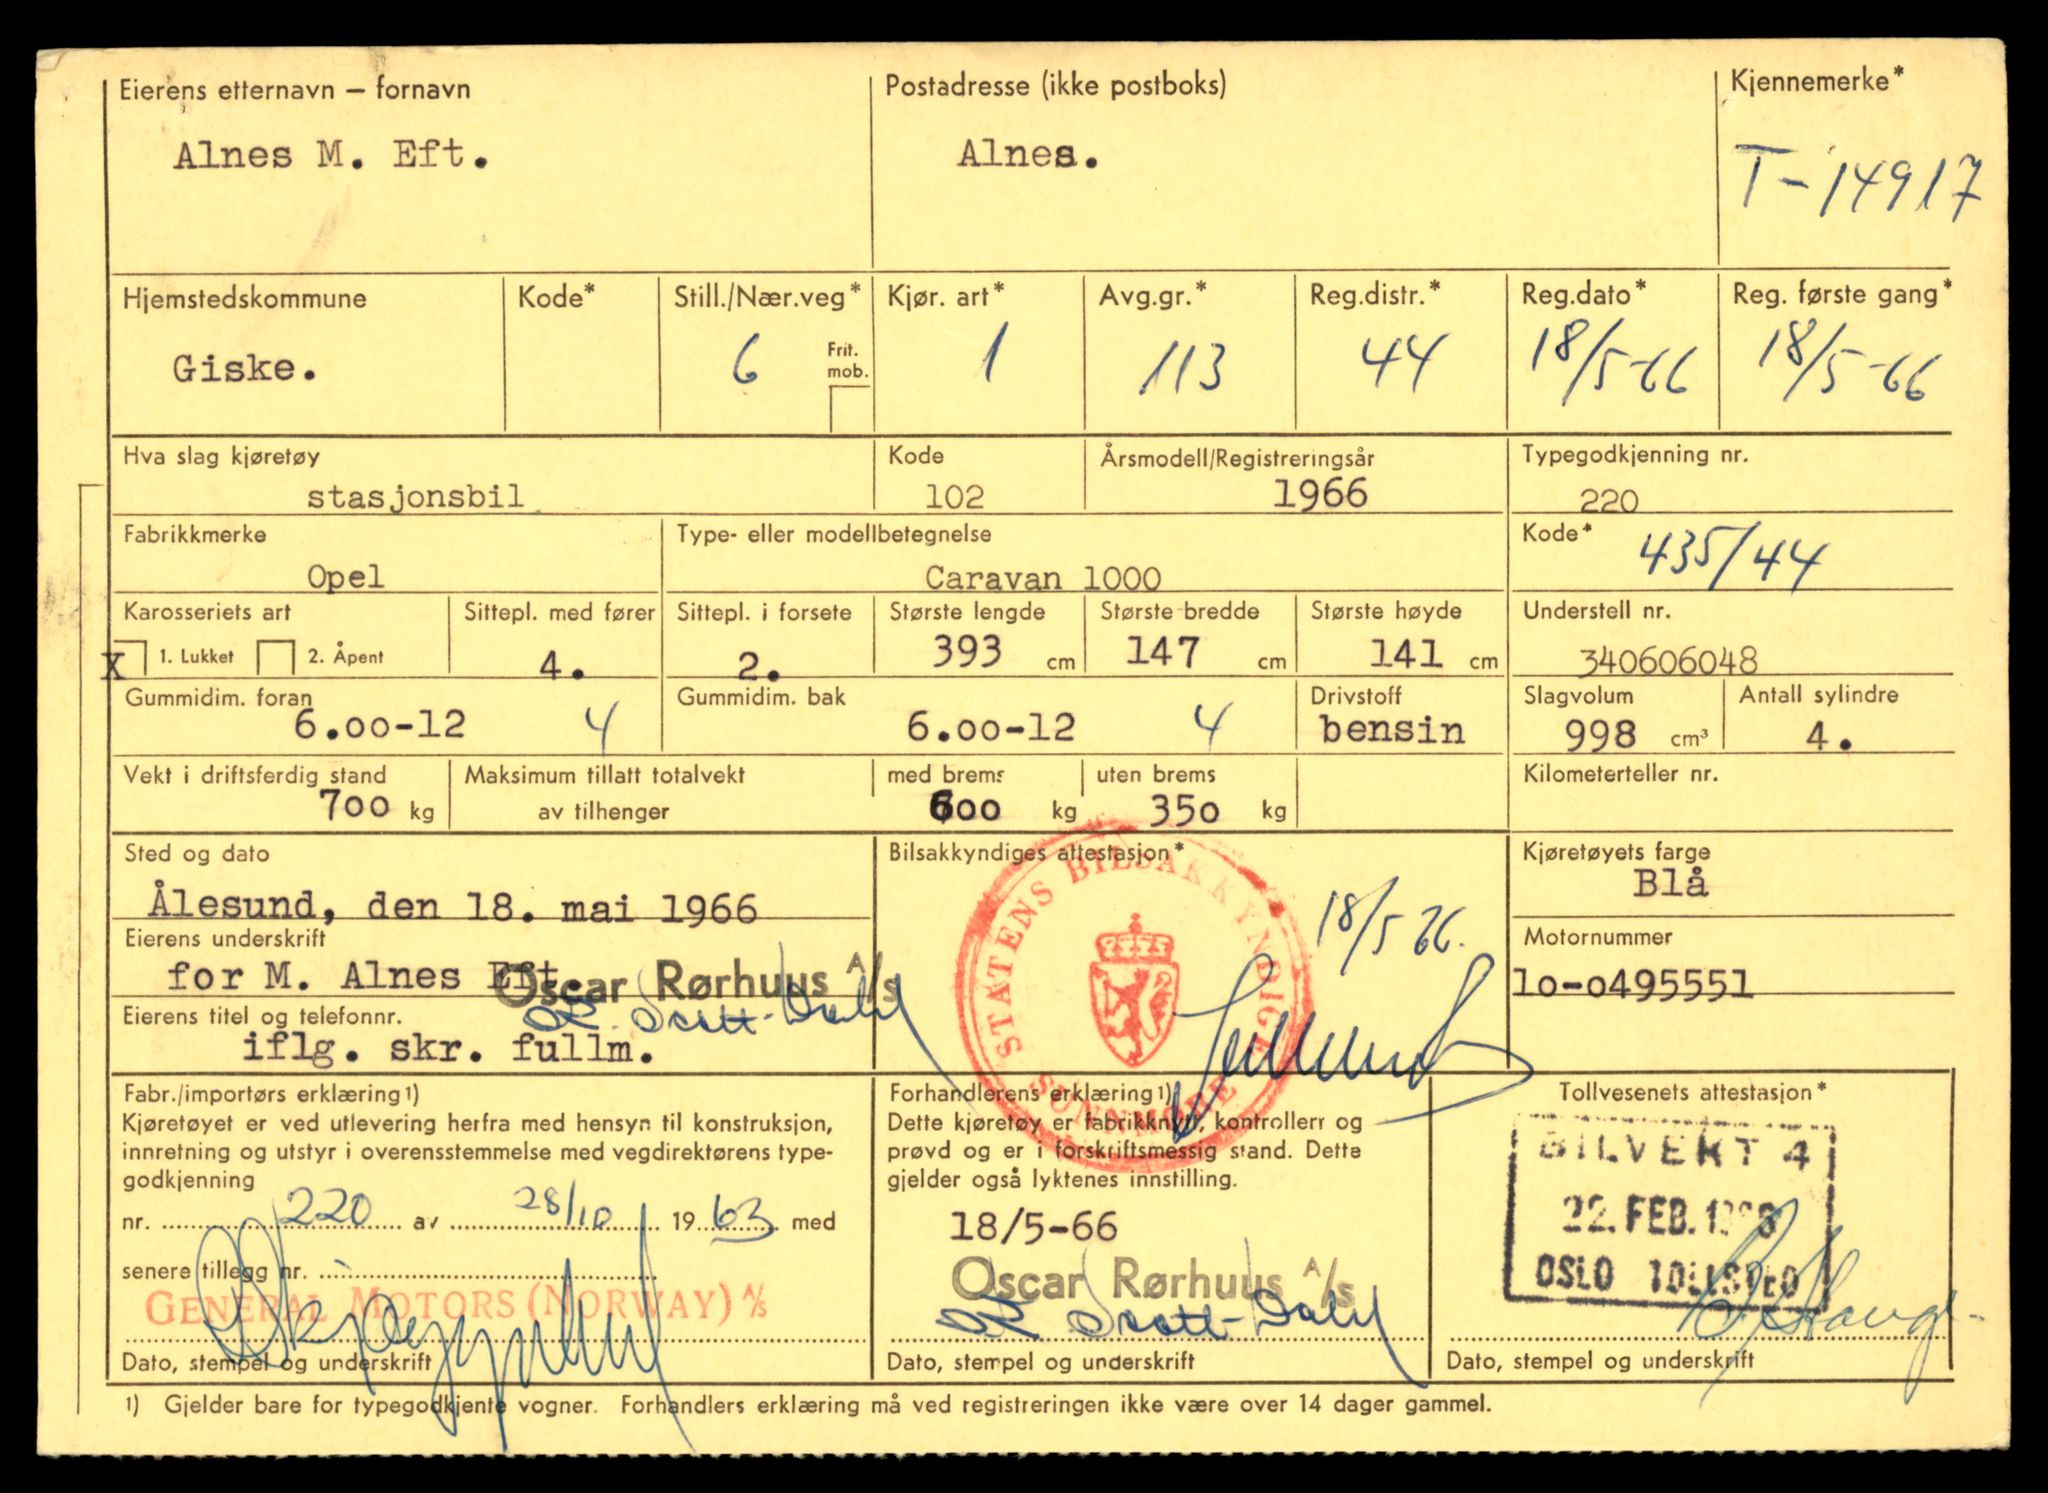 Eierens etternavn – fornavn Postadresse (ikke postboks) Kjennemerke*
Alnes M. Eft. Alnes. T-14917
Hjemstedskommune Kode* Still./Nær.veg* Kjør. art* Avg.gr.* Reg.distr.* Reg.dato* Reg. første gang*
Giske. 6 Frit. mob. 1 113 44 18/5-66 18/5-66
Hva slag kjøretøy Kode Årsmodell/Registreringsår Typegodkjenning nr.
stasjonsbil 102 1966 220
Fabrikkmerke Type- eller modellbetegnelse Kode* 435/44
Opel Caravan 1000
Karosseriets art Sittepl. med fører Sittepl. i forsete Største lengde Største bredde Største høyde Understell nr.
X 1. Lukket 2. Åpent 4. 2. 393 cm 147 cm 141 cm 340606048
Gummidim. foran Gummidim. bak Drivstoff Slagvolum Antall sylindre
6.00-12 4 6.00-12 4 bensin 998 cm³ 4.
Vekt i driftsferdig stand Maksimum tillatt totalvekt med brems uten brems Kilometerteller nr.
700 kg av tilhenger 600 kg 350 kg
Sted og dato Bilsakkyndiges attestasjon* Kjøretøyets farge
Ålesund, den 18. mai 1966 18/5 66. Blå
STATENS BILSAKKYNDIGE SUNNMØRE
Eierens underskrift Motornummer
for M. Alnes Eft. Oscar Rørhuus A/S 10-0495551
Eierens titel og telefonnr.
iflg. skr. fullm.
Fabr./importørs erklæring1) Forhandlerens erklæring1) Tollvesenets attestasjon*
Kjøretøyet er ved utlevering herfra med hensyn til konstruksjon, Dette kjøretøy er fabrikknytt, kontrollert og
innretning og utstyr i overensstemmelse med vegdirektørens type- prøvd og er i forskriftsmessig stand. Dette
godkjenning gjelder også lyktenes innstilling.
BILVERT 4
nr. 220 av 28/10 1963 med 18/5-66 22. FEB. 1966
senere tillegg nr. OSLO TOLLSTED
GENERAL MOTORS (NORWAY) A/S Oscar Rørhuus A/S
Dato, stempel og underskrift Dato, stempel og underskrift Dato, stempel og underskrift
1) Gjelder bare for typegodkjente vogner. Forhandlers erklæring må ved registreringen ikke være over 14 dager gammel.